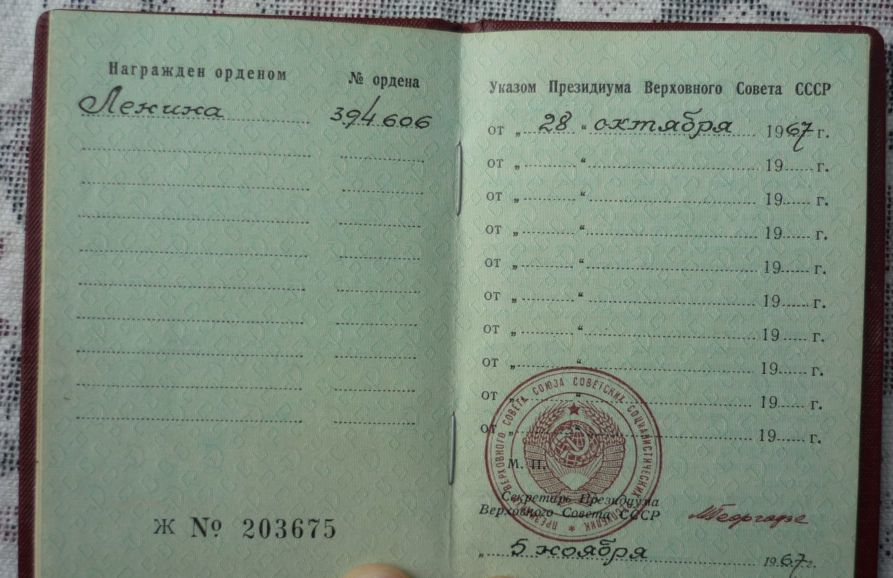 Награжден орденом
№ ордена
Ленина
394606
Ж № 203675
Указом Президиума Верховного Совета СССР
от „ 28 “ октября 1967 г.
от „ “ 19 г.
от „ “ 19 г.
от „ “ 19 г.
от „ “ 19 г.
от „ “ 19 г.
от „ “ 19 г.
от „ “ 19 г.
от „ “ 19 г.
от „ “ 19 г.
ПРЕЗИДИУМ ВЕРХОВНОГО СОВЕТА СОЮЗА СОВЕТСКИХ СОЦИАЛИСТИЧЕСКИХ РЕСПУБЛИК
М. П.
Секретарь Президиума
Верховного Совета СССР
„ 5 ноября 1967 г.